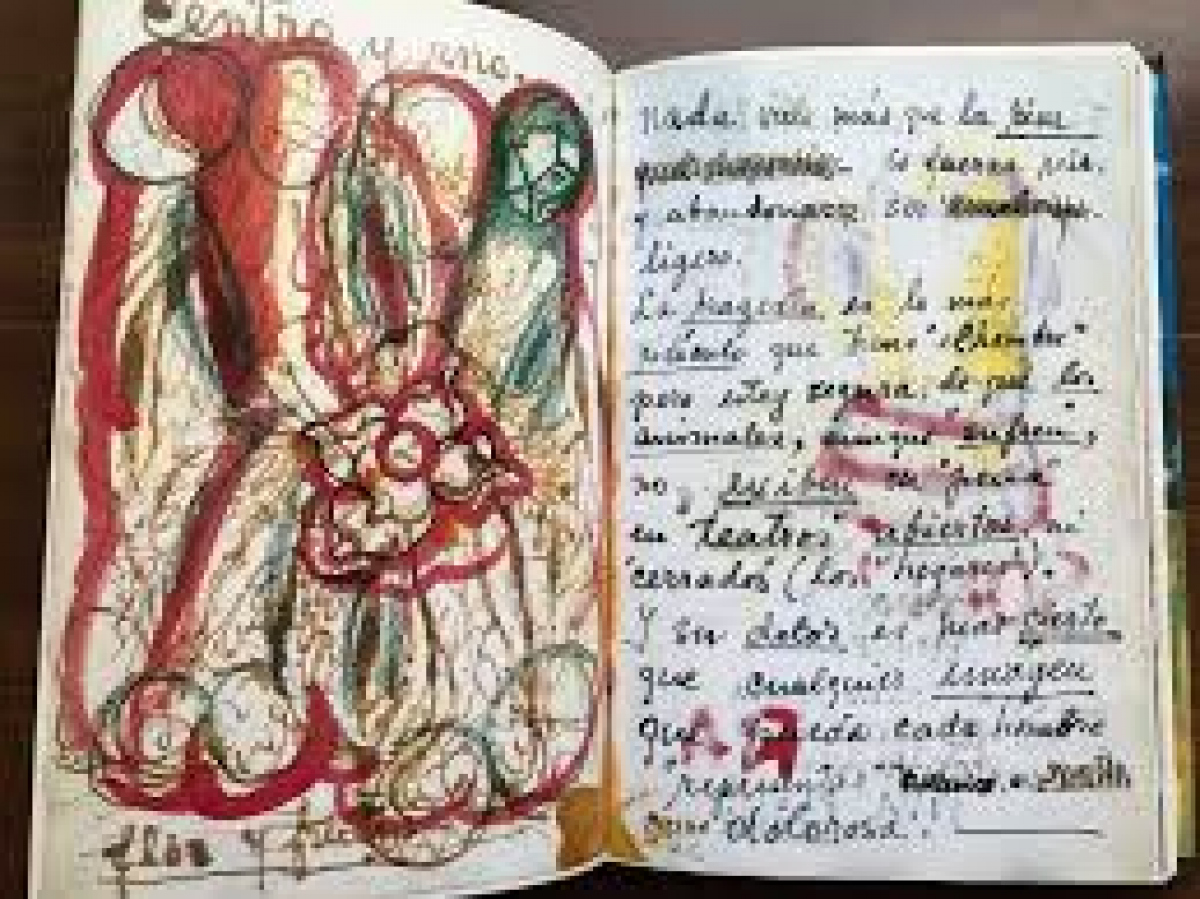 Centro y uno.
flor y
nada vale más que la risa
es fuerza reir
y abandonarse, ser
ligero.
La tragedia es lo más
ridículo que tiene "el hombre"
pero estoy segura, de que los
animales, aunque "sufren",
no exiben su "pena"
en "teatros" abiertos, ni
"cerrados" (los "hogares").
Y su dolor es más cierto
que cualquier imagen
que pueda cada hombre
"representar"
como dolorosa!